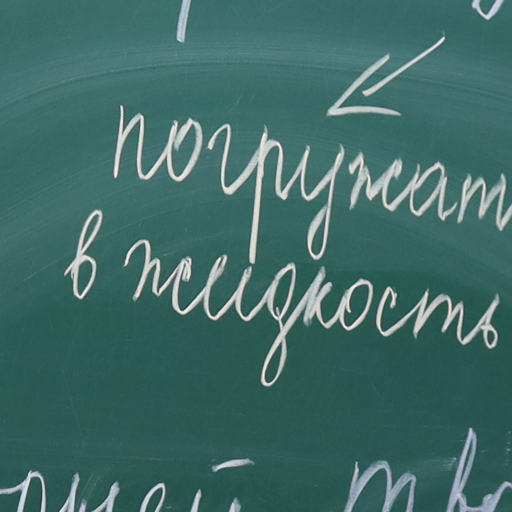 погружат
в жидкость